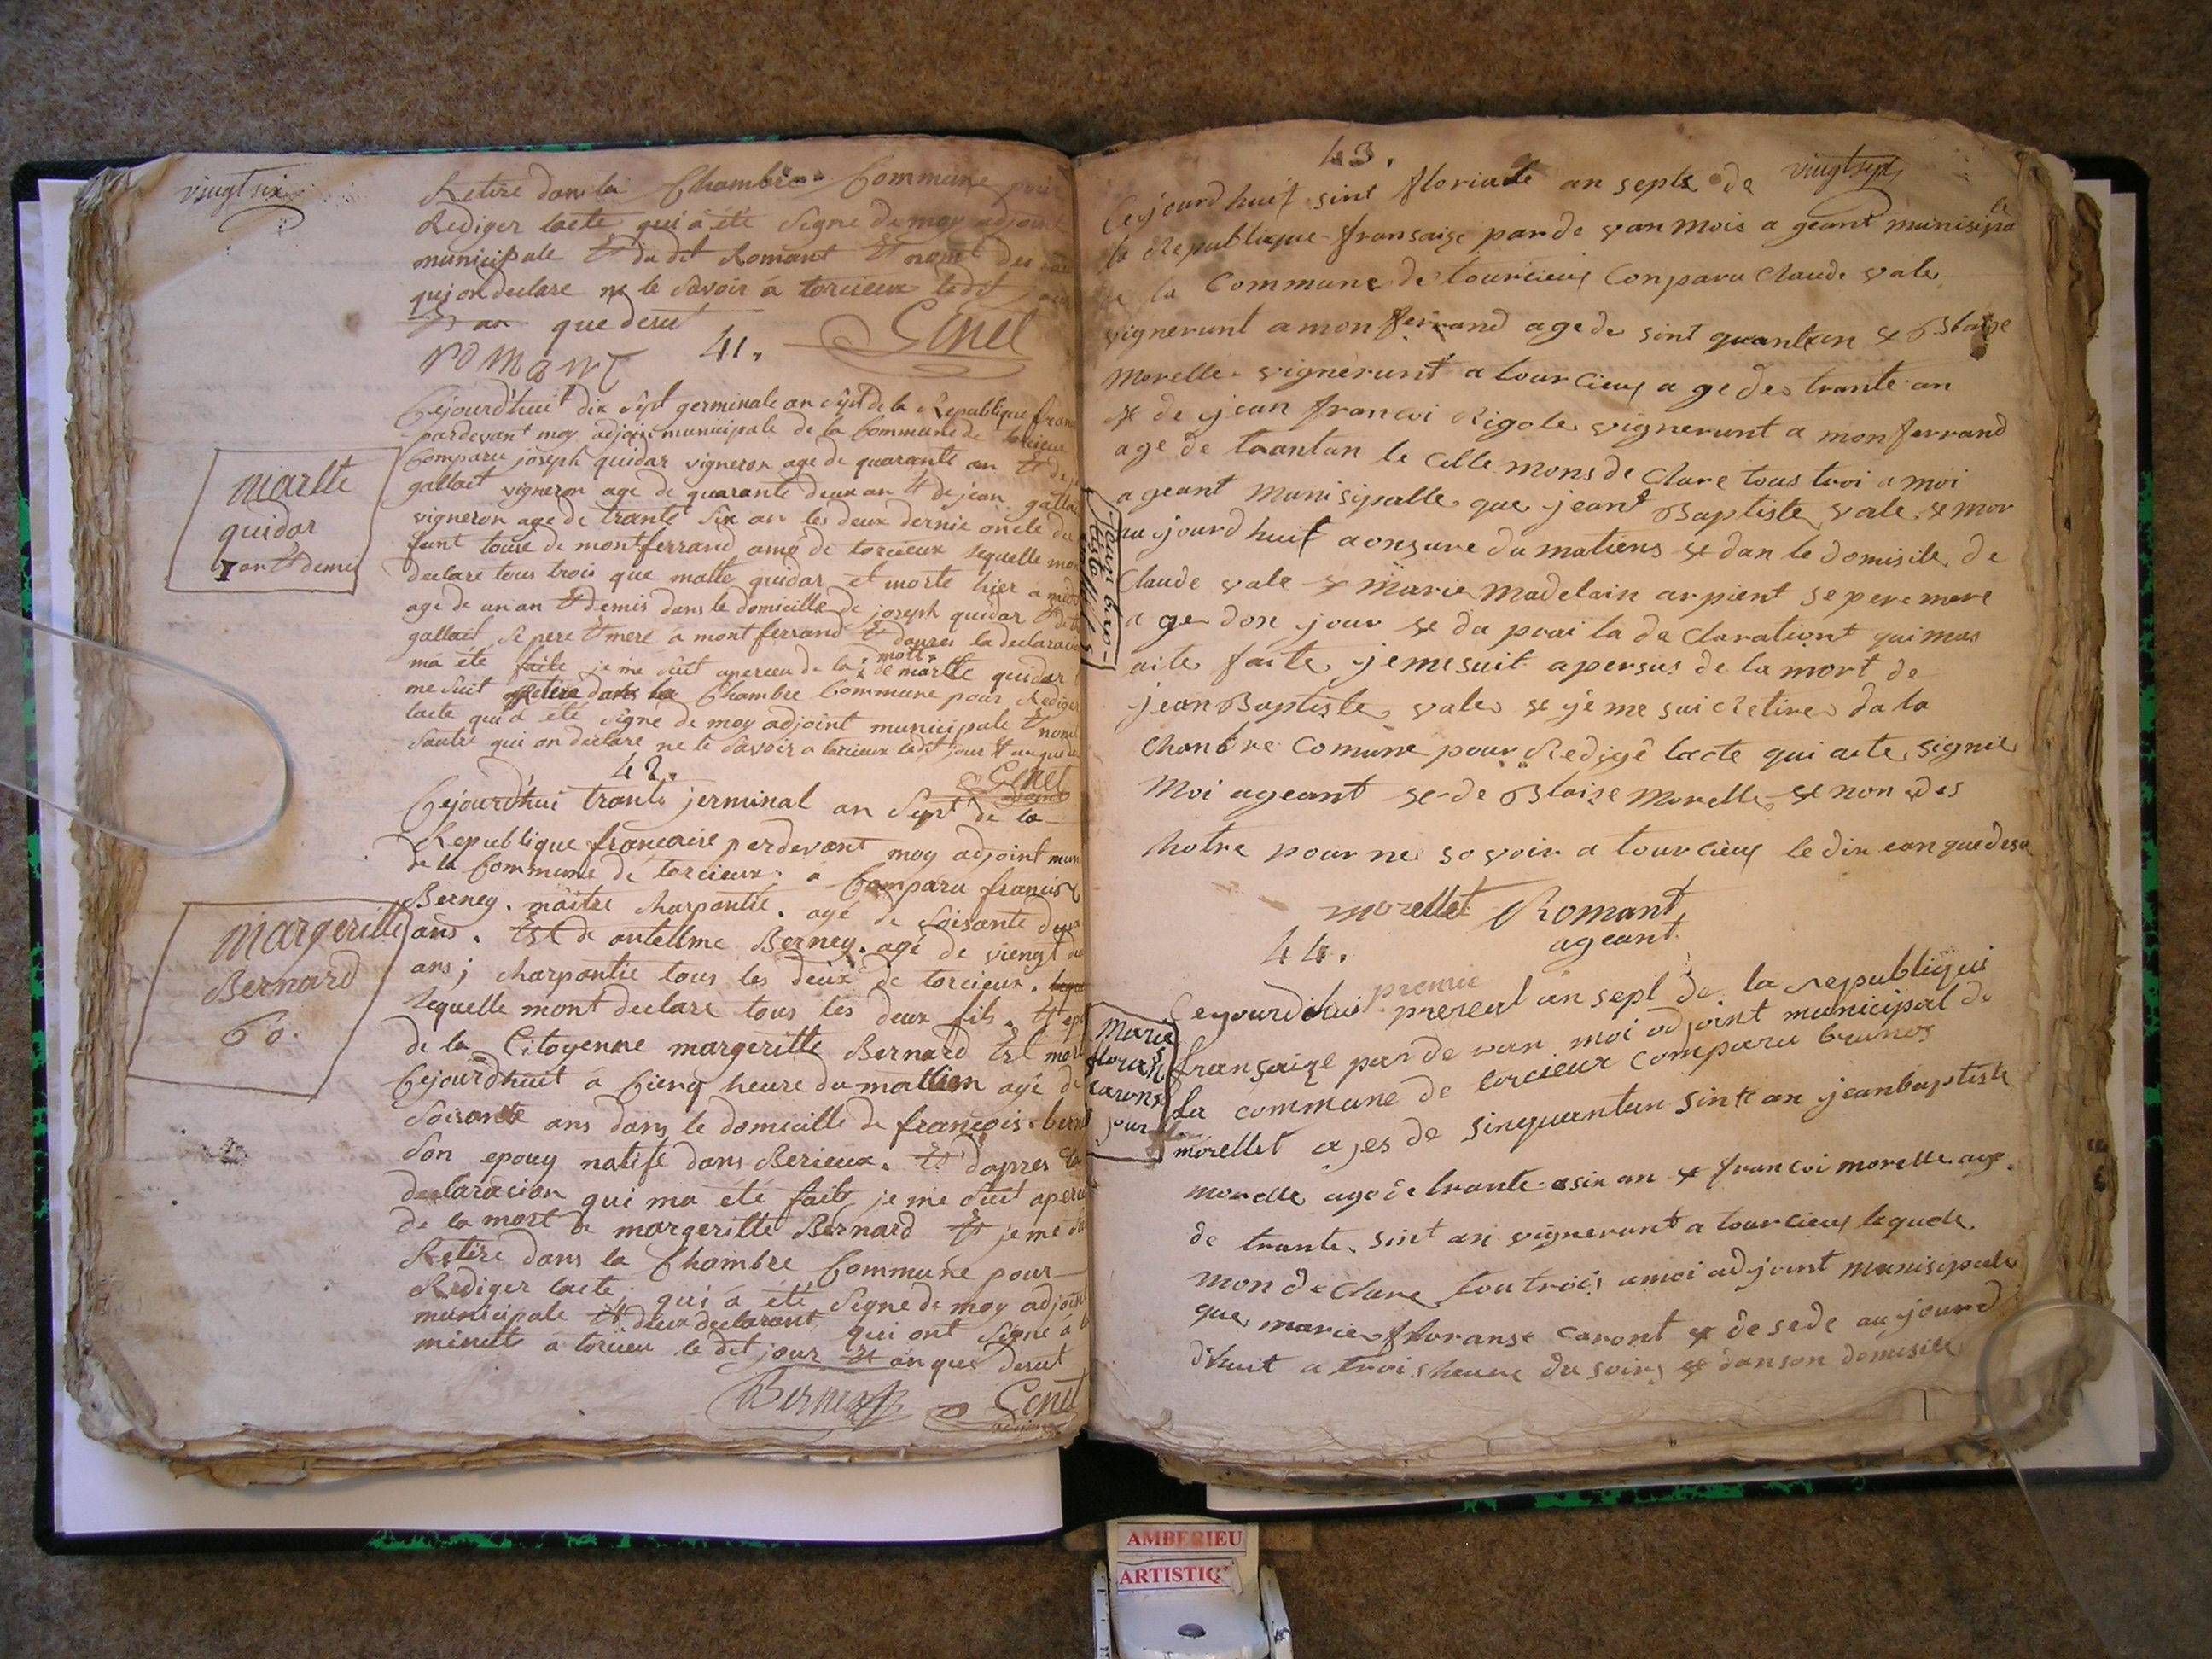 vingt six
Retire dans la Chambre Commune pour
Rediger lacte qui a été Signe de moy adjoint
municipale Et du dit Romant Et nomt des
qui on declare ne le Savoir a torcieux ledit jour
Et an que desu
romant 41. Genel
Cejourd'huit dix sept germinale an sept de la Republique
pardevant moy adjoin municipale de la Commune de torcieux
Comparu joseph quidar vigneron age de quarante an Et de
gallait vigneron age de quarante deux an Et de jean
vigneron age de trante Six an les deux dernie oncle du
funt touse de montferrand ame de torcieux lequelle
declare tous trois que matte quidar et morte hier a
age de un an Et demis dans le domicille de joseph quidar
gallait Se pere Et mere a montferrand Et dapres la declaracion
ma été faite je me suit apercu de la mort de martte quidar
me Suit Retire dans la Chambre Commune pour Rediger
lacte qui a été Signe de moy adjoint municipale Et
Sautre qui on declare ne le Savoir a torcieux ledit jour Et an que
Genel
adjoint
martte
quidar
1 an Et demi
42.
Cejourd'hui trante jerminal an Sept de la
Republique francoise perdevant moy adjoint
de la Commune de torcieux. a Comparu francois
Berney. maitre charpantie. agé de Soisante deux
ans. Et de antellme Berney. agé de viengt
ans; charpantie tous les deux de torcieux.
lequelle mont declare tous les deux fils. Et
de la Citoyenne margeritte Bernard Est morte
Cejourdhuit a Cienq heure du mattien agé de
Soisante ans dans le domicille de francois
Son epouy natife dans Berieux. Et dapres la
declaracion qui ma été faite je me Suit
de la mort de margeritte Bernard Et je me
Retire dans la Chambre Commune pour
Rediger lacte; qui a été Signe de moy adjoint
municipale Et deux declarant qui ont Signe a
minutte a torcieu le dit jour Et an que desut
Genel
adjoint
margeritte
Bernard
60.
vingt sept
43.
Cejourd huit sint floriale an septe de
la Republique fransaise par de van mois a geant munisipale
de la Commune de tourcieux Conparu Claude vale
vignerunt a mon ferrand age de sint quantean & Blaise
Morelle vignerunt a tourcieux a gedes trante an
& de jean francoi Rigole vignerunt a monferrand
age de trantan le celle mons de Clare tous troi a moi
ageant Munisipalle que jeant Baptiste vale & mor
aujourd huit a onsure du matiens & dan le domisile de
Claude vale & Marie Madelain arpient se pere mere
age donse jour & da prai la de Clarationt qui mas
aite faite je me suit a persus de la mort de
jean Baptiste vale & je me sui Retire da la
chanbre comune pour Redigé lacte qui aete signie
Moi ageant & de Blaise Morelle & non des
hotre pour ne so voir a tourcieux le dix ean que desu
morellet Romant
ageant
44.
premie
Ce yourdhui prereal an sept de la republiqui
française par de van moi adjoint municipal de
La commune de torcieux comparu brunos
morellet ages de sinquantan sint an jeanbaptiste
morelle age de trante six an & francoi morelle age
de trante sint an vignerunt a tourcieux lequele
mon de Clare tou trois amoi adjoint munisipale
que marie floranse caront & de sede au jourd
dhuit a trois heure du soir & danson domisile
Marie
floranse
caront
jour
AMBERIEU
ARTISTIQ